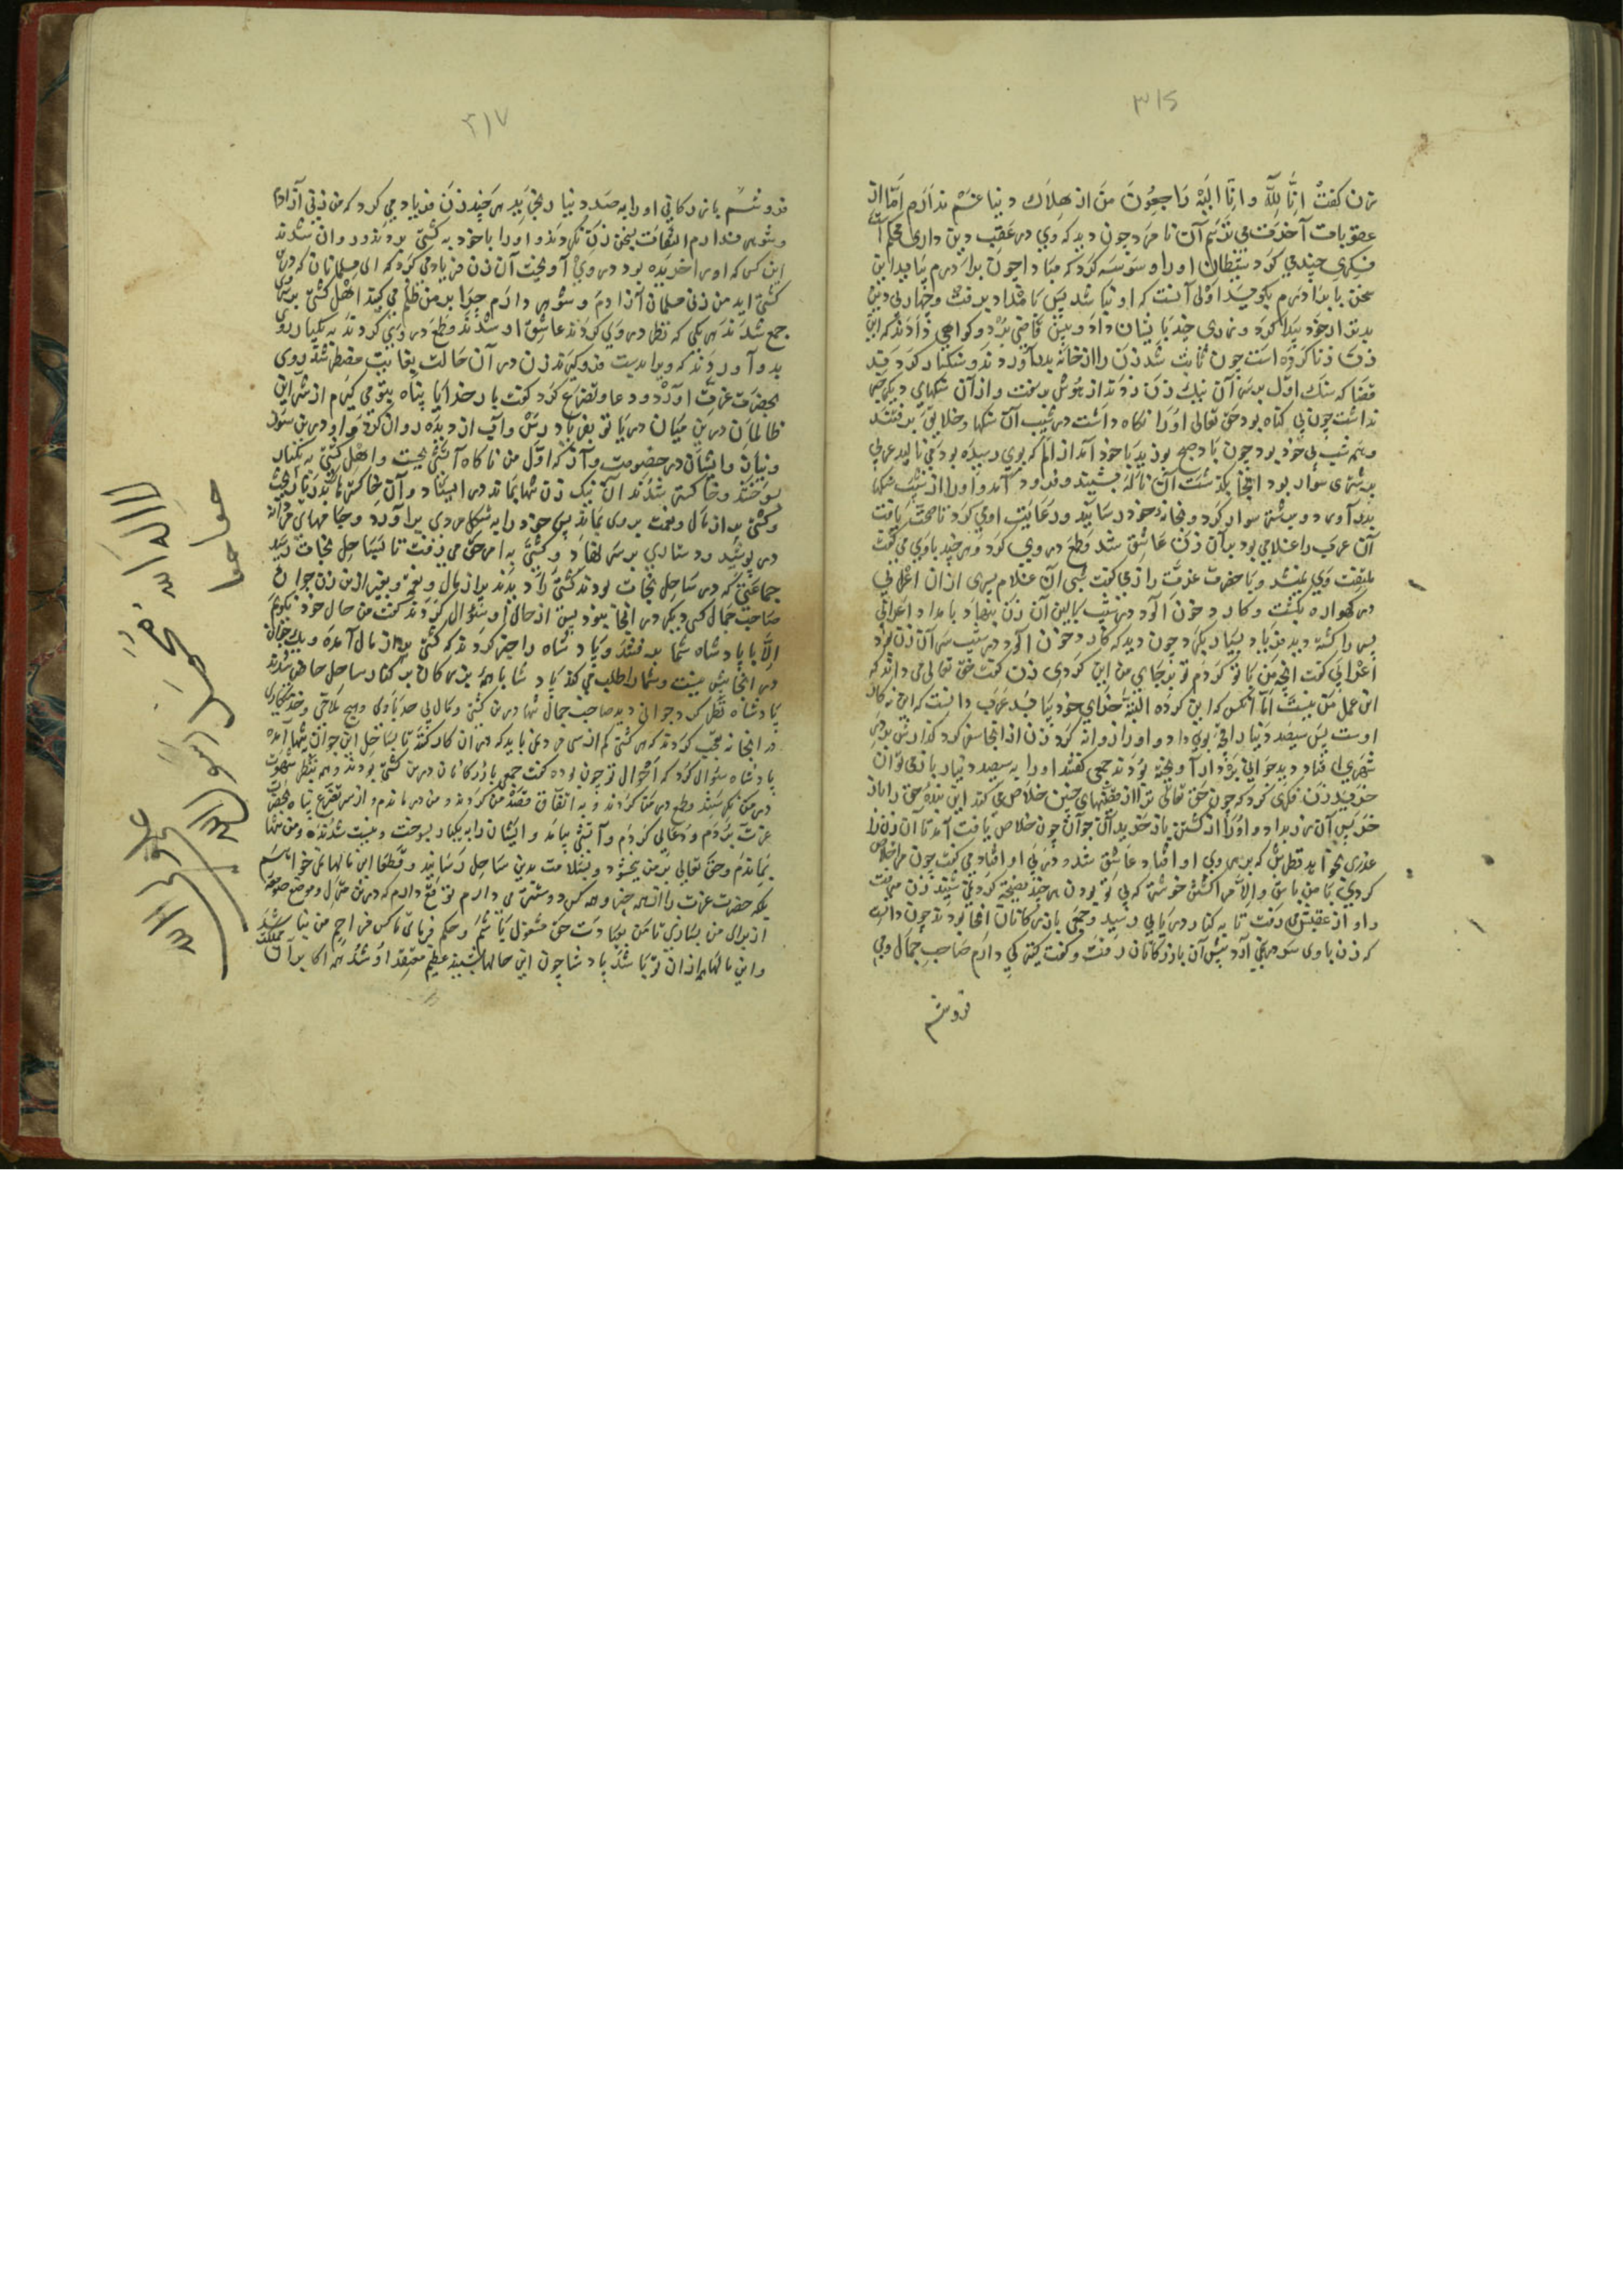 ۳۱۶
زن کفت انا لله وانا الیه راجعون من از هلاك دنیا غم ندارم اما از
عقوبات آخرت می ترسم آن نا مرد چون دید که وی در عقب دین داری محکم است
فکری چند می کرد شیطان اورا وسوسه کرد که مبادا چون برادرم بیاید این
سخن با برادرم بکوید اولی آنست که او
بدتر از خود پیدا کرد و بیش قاضی برد و کواهی دادند که این
زن زنا کرده است چون ثابت شد زن را از خانه بدر آوردند و سنکسار کردند
قضا که سنك اول بر سر آن نیك زن زدند از هوش برفت و از آن سنکهای دیکر خبر
نداشت چون بی کناه بود حق تعالی اورا نکاه داشت در شیب آن سنکها و خلایق برفتند
و همه شب بی خود بود چون باد صبح بوزید با خود آمد از الم که بوی رسیده بود می نالید عربی
بر شتری سوار بود انجا بکذشت آن ناله بشنید و فرود آمد و اورا از شیب سنکها
بدر آورد و بر شتر سوار کرد و بخانه خود رسانید و رعایت او می کرد تا صحت یافت
آن عرب را غلامی بود بر آن زن عاشق شد و طمع در وی کرد و هر چند باوی می کفت
ملتفت وی نمیشد و با حضرت عزت راز می کفت شبی آن غلام پسری از ان اعرابی
در کهواره بکشت و کارد خون آلود در شیب بالین آن زن بنهاد بامداد اعرابی
پسر را کشته دید فریاد بسیار بکرد چون دید که کارد خون آلود در شیب سر آن زن بود
اعرابی کفت انچه من با تو کردم تو بر جای من این کردی زن کفت حق تعالی می داند که
این عمل من نیست اما آنکس که این کرده البته جزای خود بیابد عرب دانست که این نه کار
اوست پس سیصد دینار انچه بوی داد و اورا روانه کرد زن از انجا سفر کرد کذارش بر در
شهری افتاد دید جوانی بر دار آویخته بودند جمعی کفتند اورا به سیصد دینار باز می توان
خرید زن فکری کرد که چون حق تعالی ترا از محنتهای چنین خلاص می کند این بنده حق را باز
خر پس آن زر بداد و اورا از کشتن باز خرید آن جوان چون خلاص یافت آمد تا آن زن را
عذری بخواهد نظرش که بر روی او افتاد عاشق شد و در پی او افتاد می کفت چون مرا خلاص
کردی با من باش والا مرا کشتن خوشتر که بی تو بودن هر چند نصیحة کردی شنید زن می رفت
و او از عقبش می رفت تا به کنار دریایی رسید و جمعی بازرکانان انجا بودند چون دانست
که زن باوی سر در نمی آرد پیش آن بازرکانان رفت و کفت کنیزکی دارم صاحب جمال و می
فروشم
۳۱۷
فروشم بازرکانی اورا به صد دینار بخرید هر چند زن فریاد می کرد که من زنی آزادم
و شوهر دارم التفات بسخن زن نکردند و اورا با خود به کشتی بردند و روان شدند
این کس که اورا خریده بود در وی آویخت آن زن فریاد می کرد که ای مسلمانان که درین
کشتی اید من زنی مسلمان آزادم و شوهر دارم چرا بر من ظلم می کنید اهل کشتی بر سر وی
جمع شدند هر یکی که نظر در وی کردند عاشق او شدند و طمع در وی کردند به یکبار رو
بدو آوردند که ویرا بدست فرو کیرند زن در آن حالت بغایت مضطر شد روی
بحضرت عزت آورد و دعا و تضرع کرد کفت بار خدایا پناه بتو می کیرم از شر این
ظالمان درین میان دریا تو بفریاد رس و آب از دیده روان کرد و او درین سوز
ونیاز و ایشان در خصومت و آن که اول من ناکاه آتشی بجست و اهل کشتی به یکبار
بسوختند و خاکستر شدند آن نیك زن تنها بماند در ایستاد و آن خاکسترها را بدریا ریخت
و کشتی پر از مال و نعمت بر وی بماند پس خود را به شکل مردی برآورد و جامهای مردانه
در پوشید و دستاری بر سر نهاد و کشتی به امر حق می رفت تا بساحل نجات رسید
جماعتی که در ساحل نجات بودند کشتی را دیدند پر از مال و نعمت و بغیر ازین زن جوان
صاحب جمال کسی دیکر در انجا نبود پس از حال او سؤال کردند کفت من حال خود نکویم
الا با پادشاه شما برفتند و پادشاه را خبر کردند که کشتی پر از مال آمده و یك جوان
در انجا بیش نیست و شمارا طلب می کند پادشا با همه بزرکان بر کنار ساحل حاضر شدند
پادشاه نظر کرد جوانی دید صاحب جمال تنها درین کشتی و مال بی حد باوی و هیچ ملاحی و خدمتکاری
در انجا نه تعجب کردند که هر کشتی کم از سی مرد می باید که در ان کار کنند تا بساحل این جوان تنها آمده
پادشاه سؤال کرد که احوال تو چون بوده کفت جمعی بازرکانان درین کشتی بودند و همه بنظر شهوت
در من نکریستند و طمع در من کردند و به اتفاق قصد من کردند و من در ماندم و از سر تضرع پناه بحضرت
عزت بردم و دعایی کردم و آتشی بیامد و ایشان را به یکبار بسوخت و نیست شدند و من تنها
بماندم و حق تعالی بر من ببخشود و بسلامت بدین ساحل رسانید و قطعا این مالها نمی خواهم
بلکه حضرت عزت را از همه چیز و همه کس دوستتر می دارم توقع دارم که درین منزل و موضع صومعه
از برای من بسازی تا من بعبادت حق مشغول باشم و حکم فرمای تا کس مزاحم من نباشد
و این مالها همه از ان تو باشد پادشا چون این حالها بشنید عظیم معتقد او شد همه اکابر آن مملکت
لا اله الا الله محمد رسول الله